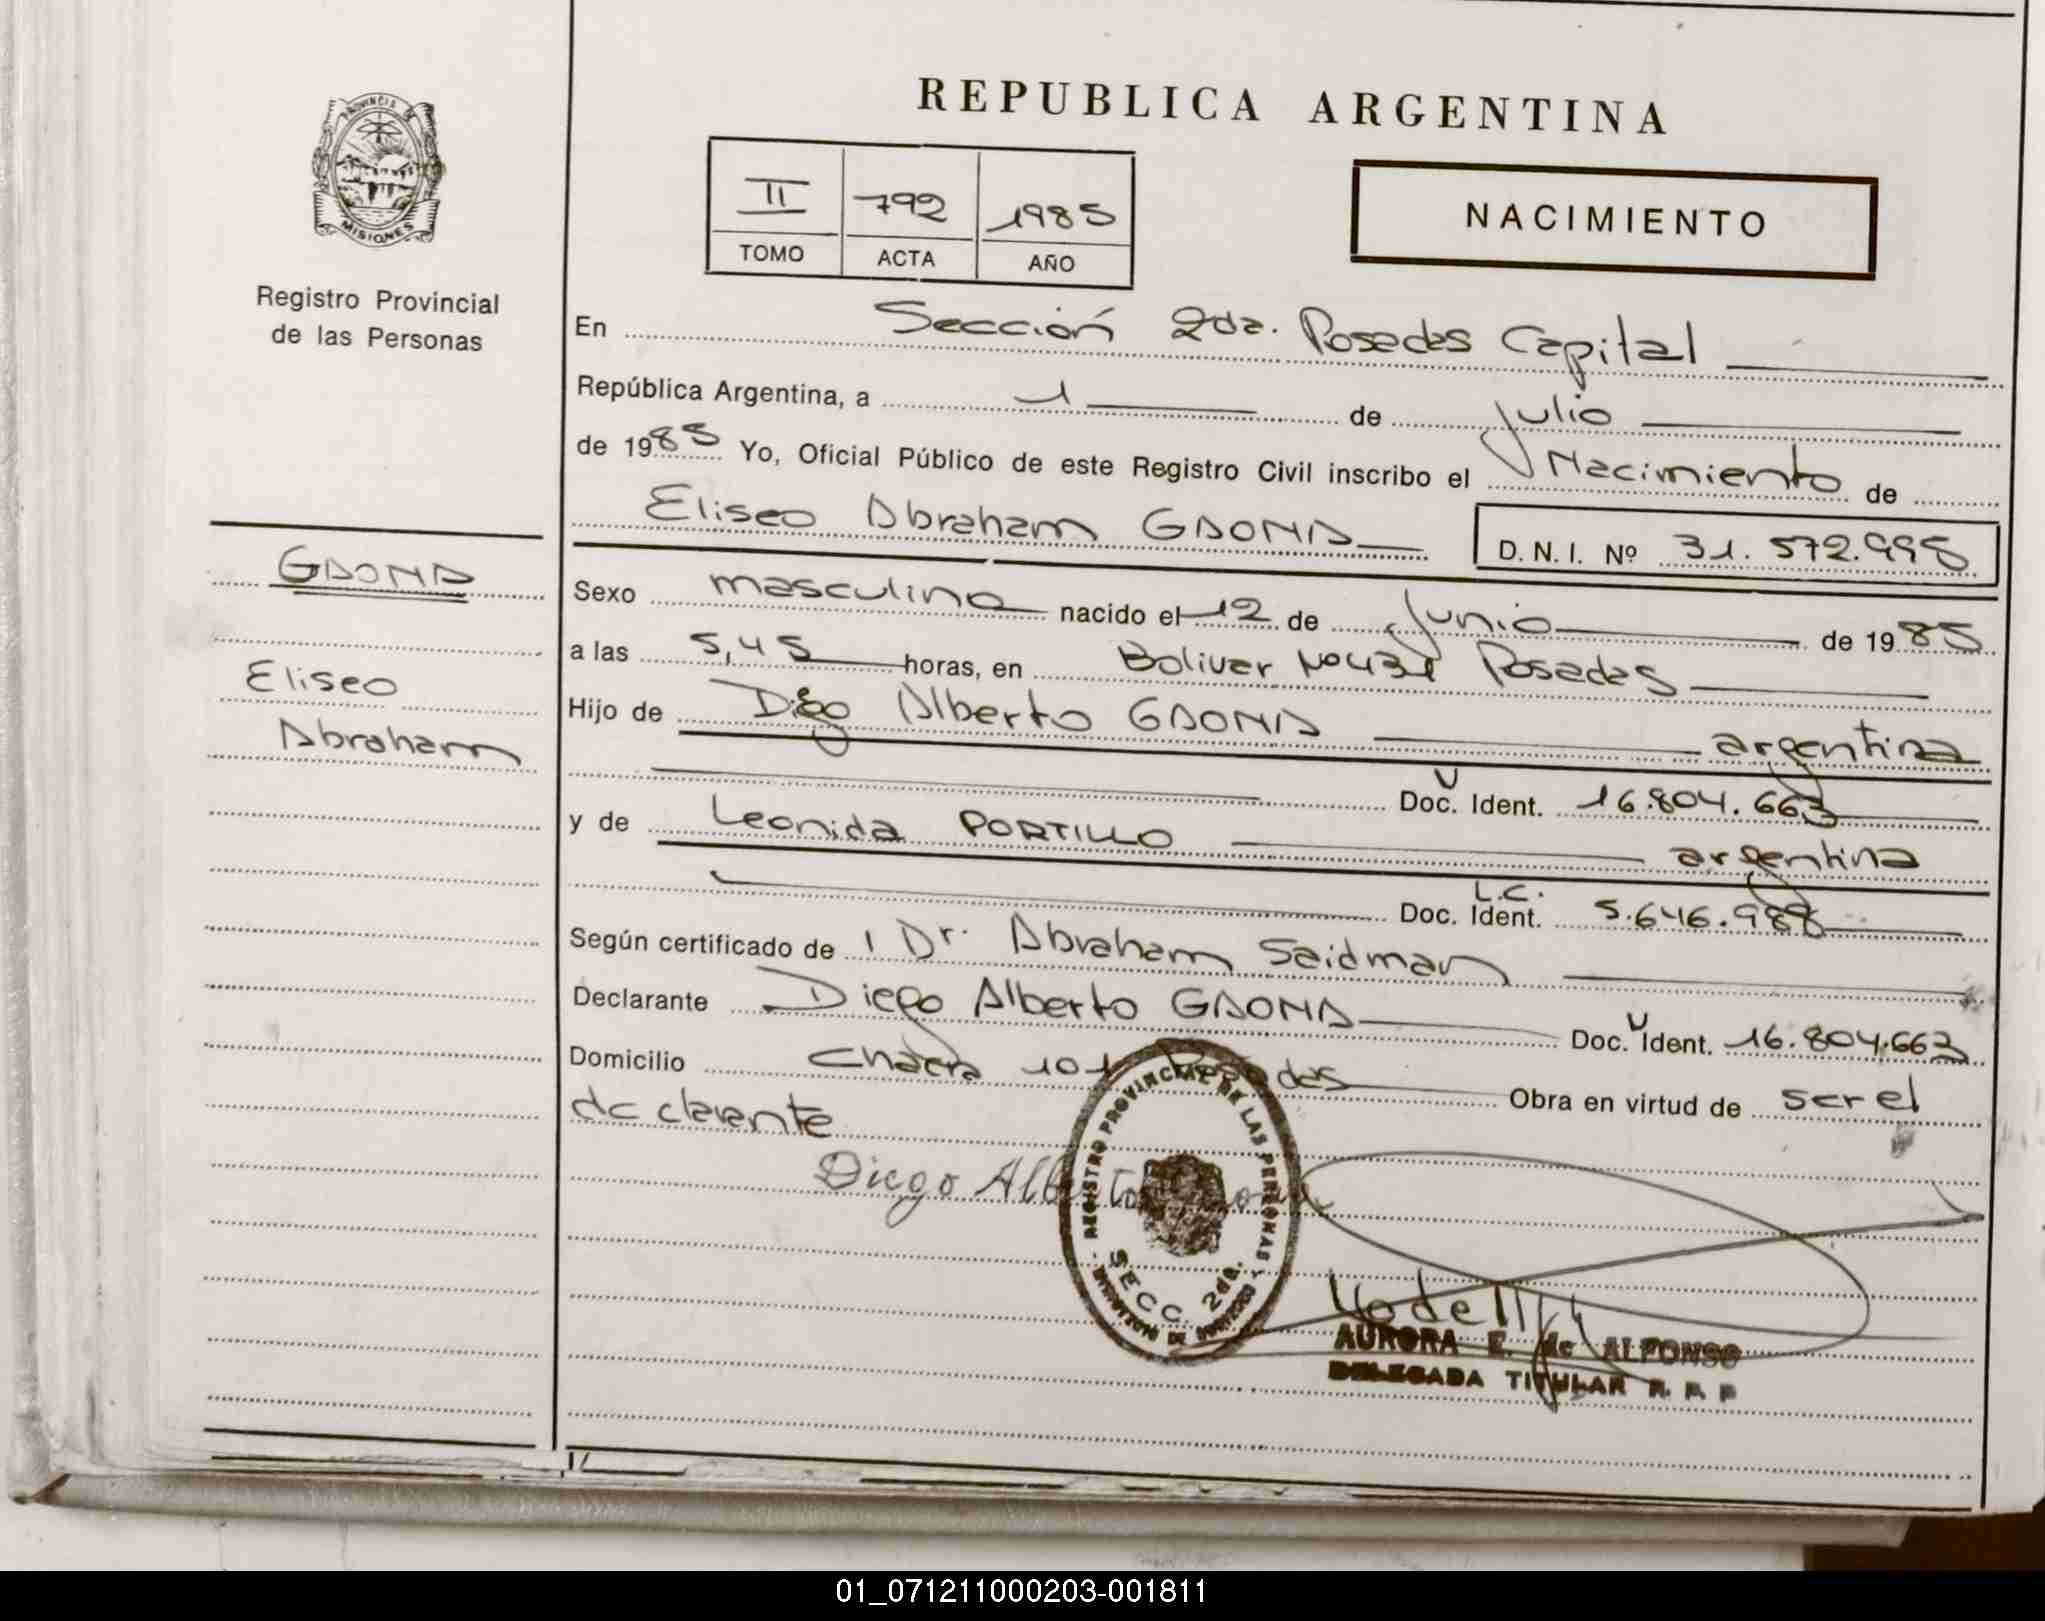 REPUBLICA ARGENTINA
PROVINCIA DE
MISIONES
Registro Provincial
de las Personas
II 792 1985
TOMO ACTA AÑO
NACIMIENTO
En Sección 2da. Posadas Capital
República Argentina, a 1 de julio
de 1985 Yo, Oficial Público de este Registro Civil inscribo el Nacimiento de
Eliseo Abraham GAONA
D. N. I. Nº 31.572.998
GAONA
Eliseo
Abraham
Sexo masculino nacido el 12 de Junio de 1985
a las 5,45 horas, en Bolivar Nº 431 Posadas
Hijo de Diego Alberto GAONA argentina
Doc. Ident. 16.804.663
y de Leonida PORTILLO argentina
L.C.
Doc. Ident. 5.646.988
Según certificado de Dr. Abraham Saidman
Declarante Diego Alberto GAONA Doc. Ident. 16.804.663
Domicilio Chacra 101 Posadas Obra en virtud de ser el
declarante
Diego Alberto
REGISTRO PROVINCIAL DE LAS PERSONAS
SECC. 2da.
AURORA E. de ALFONSO
DELEGADA TITULAR R. P. P
01_071211000203-001811